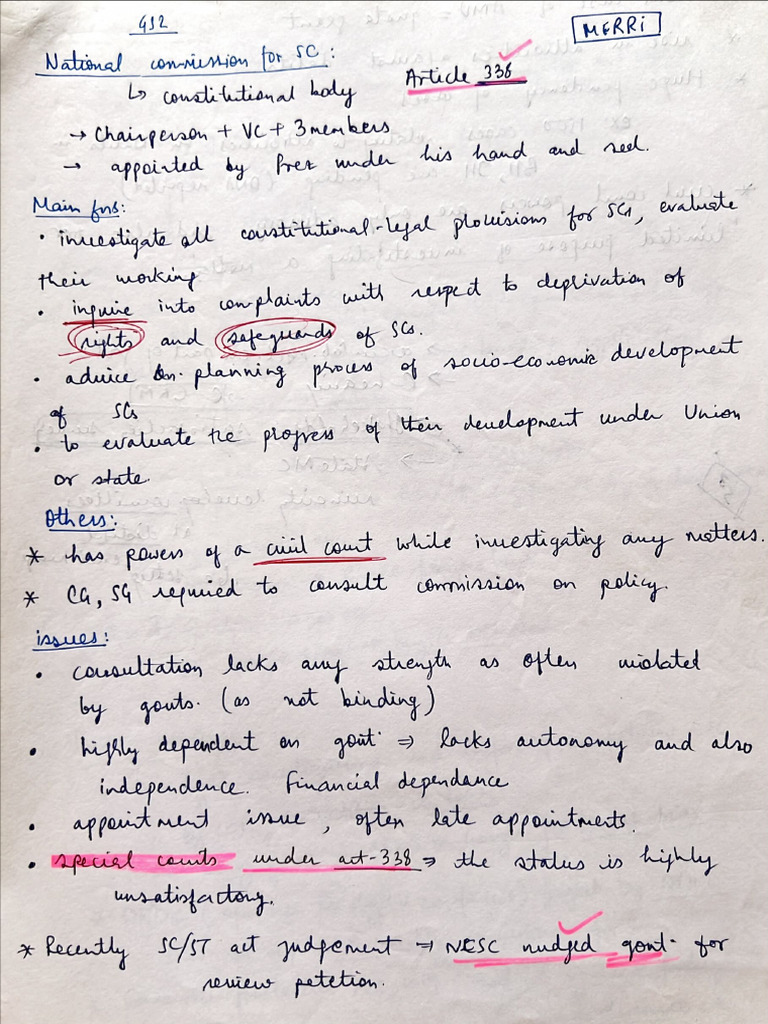 GS2
MERRi
National commission for SC:
Article 338
↳ constitutional body
→ Chairperson + VC + 3 members
→ appointed by Prez under his hand and seal.
Main fns:
• investigate all constitutional-legal provisions for SCs, evaluate
their working
• inquire into complaints with respect to deprivation of
rights and safeguards of SCs.
• advice on planning process of socio-economic development
of SCs
• to evaluate the progress of their development under Union
or state.
Others:
* has powers of a civil court while investigating any matters.
* CG, SG required to consult commission on policy.
issues:
• consultation lacks any strength as often violated
by govts. (as not binding)
• highly dependent on govt. ⇒ lacks autonomy and also
independence. Financial dependance
• appointment issue, often late appointments.
• special courts under act-338 ⇒ the status is highly
unsatisfactory.
* Recently SC/ST act judgement ⇒ NCSC nudged govt. for
review petetion.